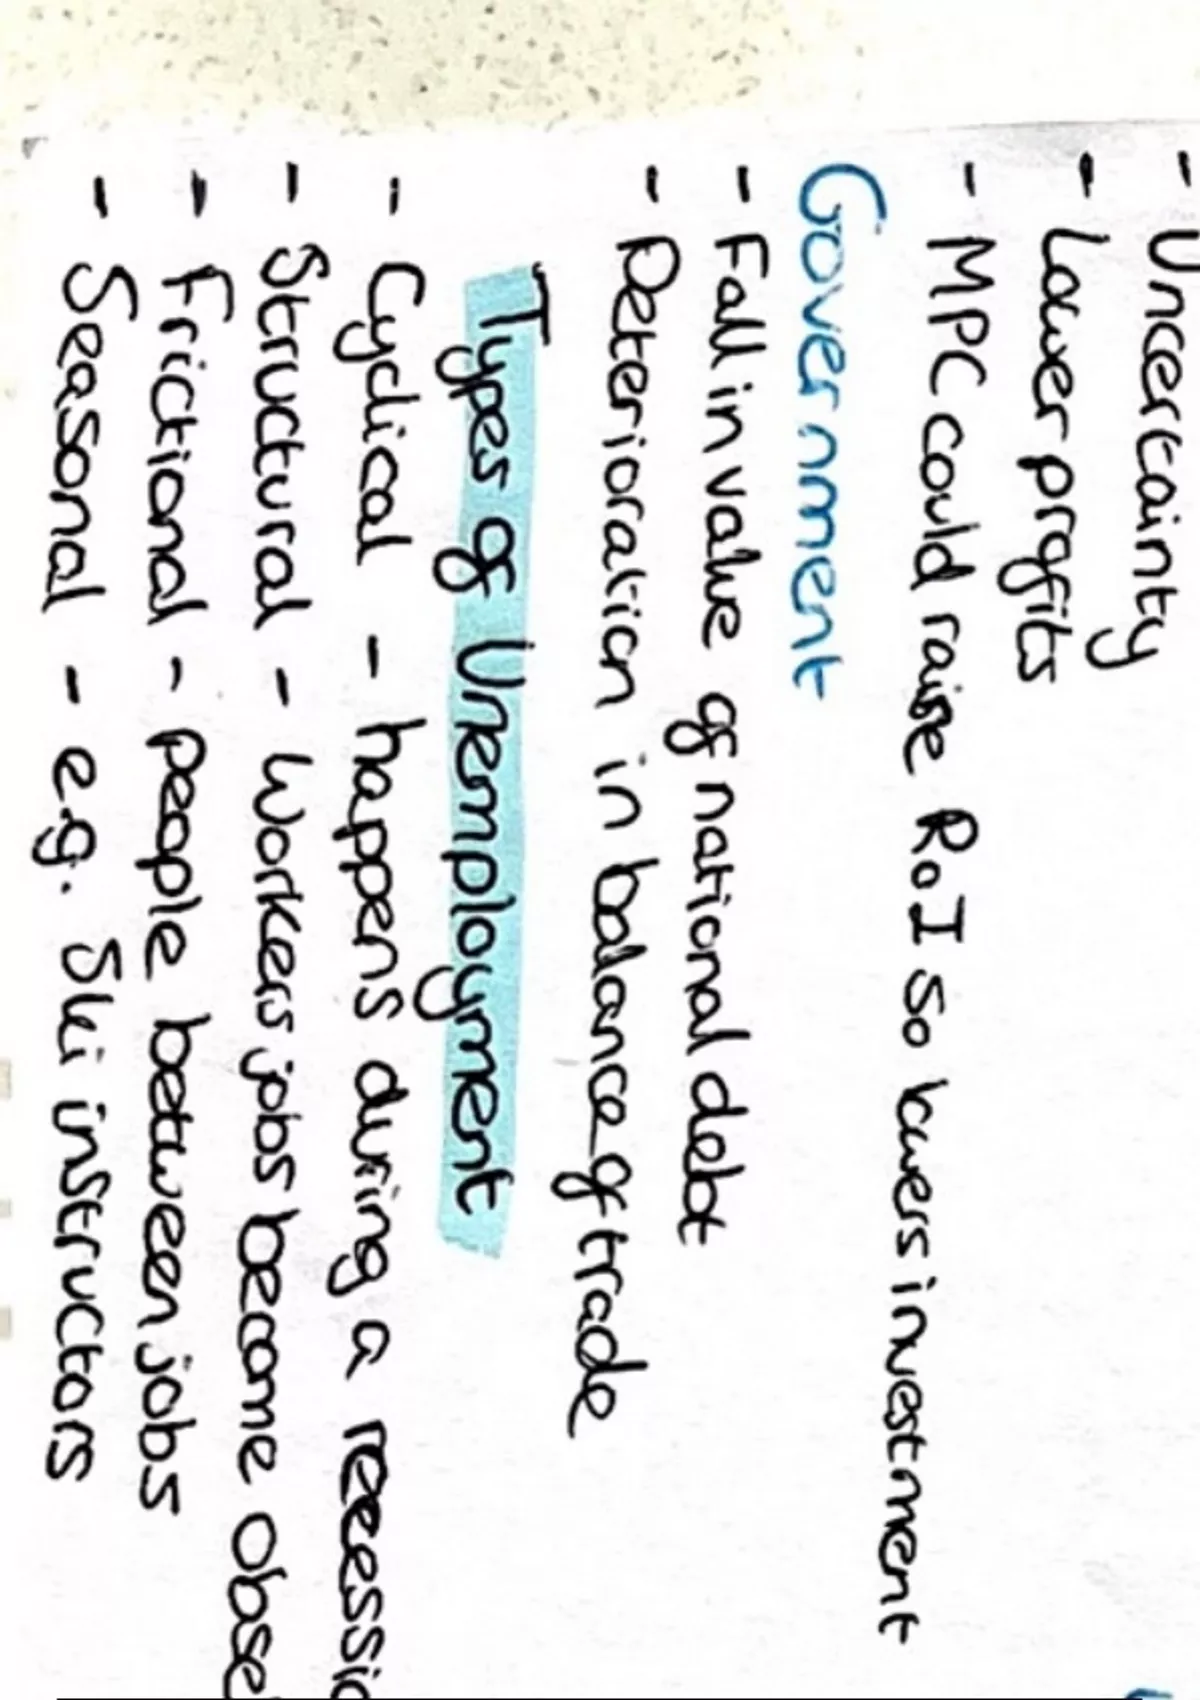 - Uncertainty
- Lower profits
- MPC could raise RoI so lowers investment
Government
- Fall in value of national debt
- Deterioration in balance of trade
Types of Unemployment
- Cyclical - happens during a recessio
- Structural - Workers jobs become obse
- Frictional - people between jobs
- Seasonal - e.g. Ski instructors